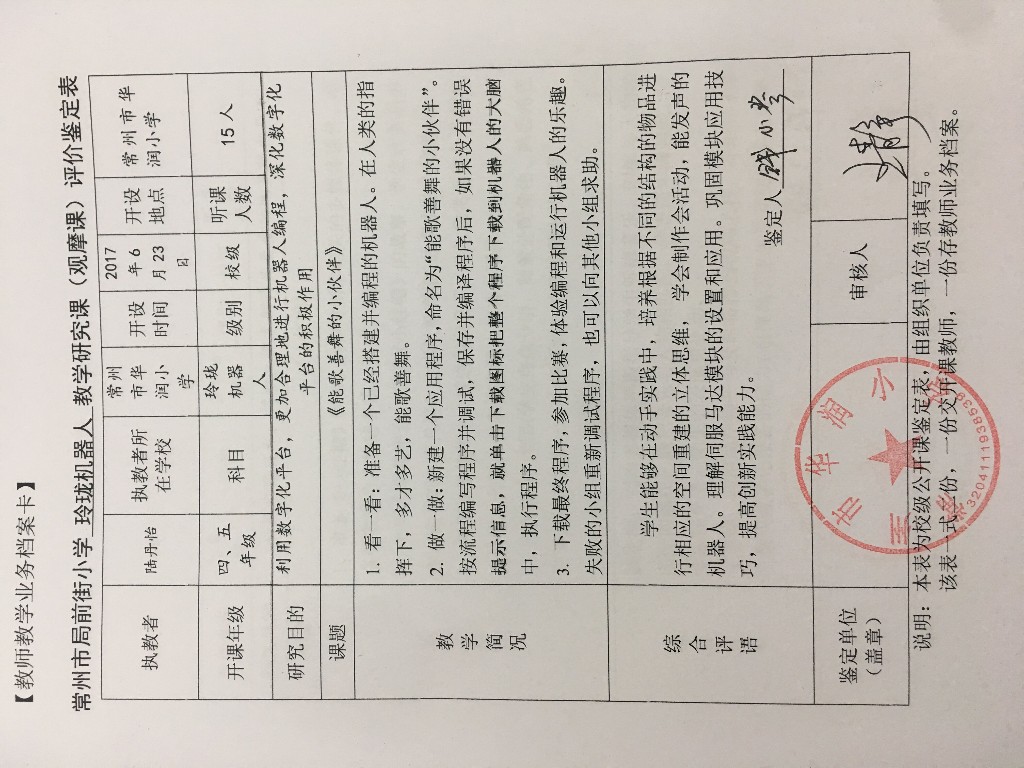 【教师教学业务档案卡】
常州市局前街小学 玲珑机器人 教学研究课（观摩课）评价鉴定表
执教者 陆丹怡 执教者所 常州 开设 2017 开设 常州市华
在学校 市华 时间 年6 地点 润小学
润小 月23
学 日
开课年级 四、五 科目 玲珑 级别 校级 听课 15人
年级 机器 人数
人
研究目的 利用数字化平台，更加合理地进行机器人编程，深化数字化
平台的积极作用
课题 《能歌善舞的小伙伴》
教学简况
1. 看一看：准备一个已经搭建并编程的机器人。在人类的指
挥下，多才多艺，能歌善舞。
2. 做一做：新建一个应用程序，命名为“能歌善舞的小伙伴”。
按流程编写程序并调试，保存并编译程序后，如果没有错误
提示信息，就单击下载图标把整个程序下载到机器人的大脑
中，执行程序。
3. 下载最终程序，参加比赛，体验编程和运行机器人的乐趣。
失败的小组重新调试程序，也可以向其他小组求助。
综合评语
学生能够在动手实践中，培养根据不同的结构的物品进
行相应的空间重建的立体思维，学会制作会活动，能发声的
机器人。理解伺服马达模块的设置和应用。巩固模块应用技
巧，提高创新实践能力。
鉴定人
鉴定单位 审核人
（盖章）
说明：本表为校级公开课鉴定表，由组织单位负责填写。
该表一式二份，一份交开课教师，一份存教师业务档案。